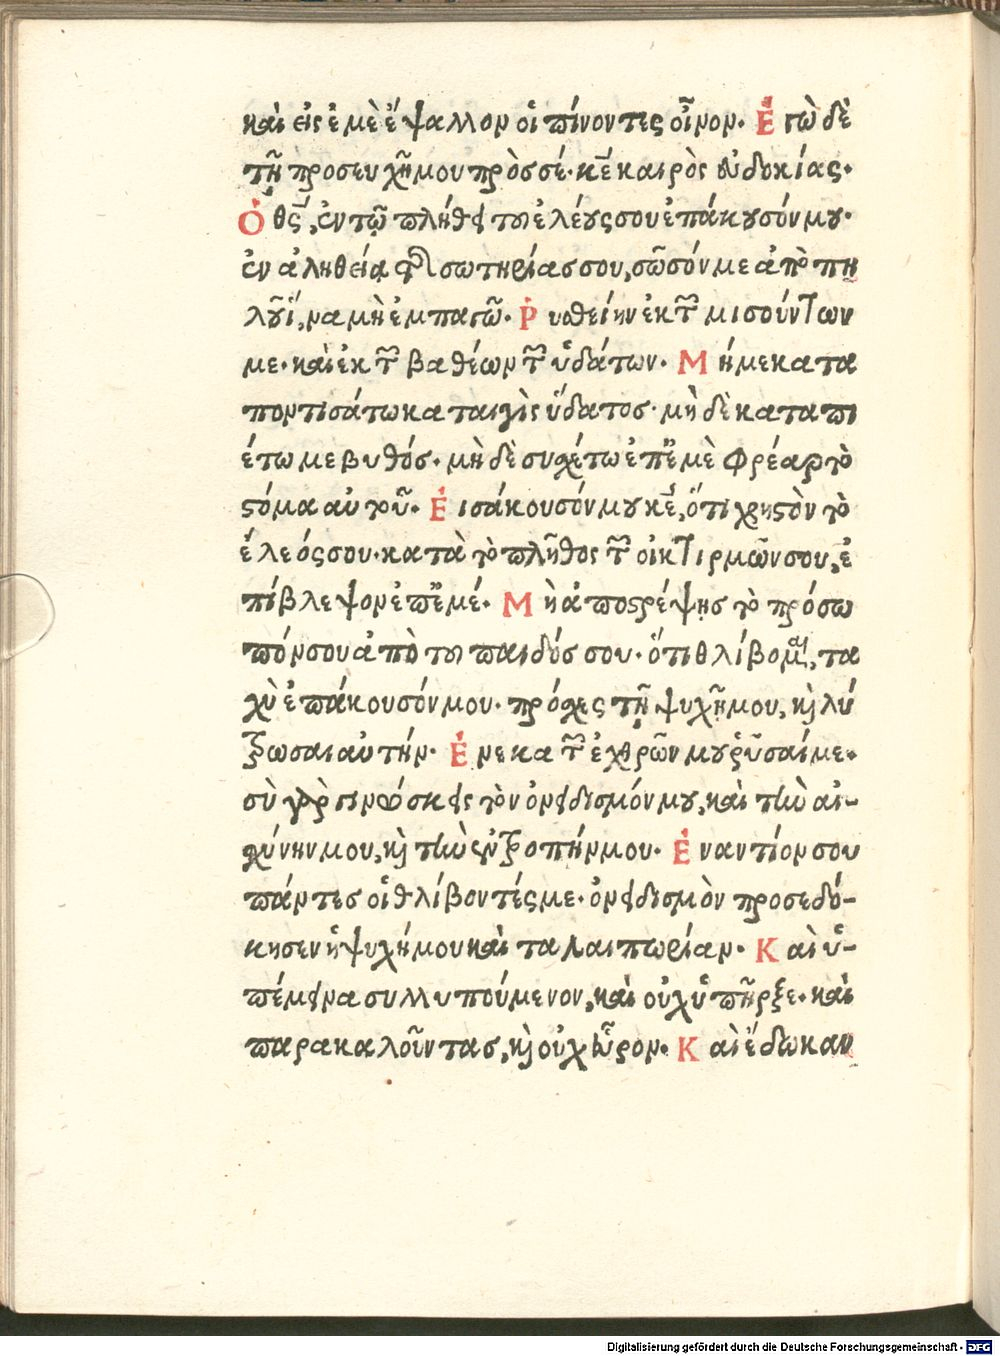 καὶ εἰς ἐμὲ ἔψαλλον οἱ πίνοντες οἶνον. Ἐγὼ δὲ
τῇ προσευχῇ μου πρὸς σέ. κε̄ καιρὸς εὐδοκίας.
Ὁ θς̄, ἐν τῷ πλήθει τοῦ ἐλέους σου ἐπάκουσόν μου.
ἐν ἀληθείᾳ τῆς σωτηρίας σου, σῶσόν με ἀπὸ πη
λοῦ ἵνα μὴ ἐμπαγῶ. Ῥυσθείην ἐκ τῶν μισούντων
με. καὶ ἐκ τῶν βαθέων τῶν ὑδάτων. Μή με κατα
ποντισάτω καταιγὶς ὕδατος. μὴ δὲ καταπι
έτω με βυθός. μὴ δὲ συσχέτω ἐπ' ἐμὲ φρέαρ τὸ
στόμα αὐτοῦ. Εἰσάκουσόν μου κε̄, ὅτι χρηστὸν τὸ
ἔλεός σου. κατὰ τὸ πλῆθος τῶν οἰκτιρμῶν σου, ἐ
πίβλεψον ἐπ' ἐμέ. Μὴ ἀποστρέψῃς τὸ πρόσω
πόν σου ἀπὸ τοῦ παιδός σου. ὅτι θλίβομαι, τα
χὺ ἐπάκουσόν μου. πρόσχες τῇ ψυχῇ μου, καὶ λύ
τρωσαι αὐτήν. Ἕνεκα τῶν ἐχθρῶν μου ῥῦσαί με.
σὺ γὰρ γινώσκεις τὸν ὀνειδισμόν μου, καὶ τὴν αἰ-
σχύνην μου, καὶ τὴν ἐντροπήν μου. Ἐναντίον σου
πάντες οἱ θλίβοντές με. ὀνειδισμὸν προσεδό-
κησεν ἡ ψυχή μου καὶ ταλαιπωρίαν. Καὶ ὑ-
πέμεινα συλλυπούμενον, καὶ οὐχ ὑπῆρξε. καὶ
παρακαλοῦντας, καὶ οὐχ εὗρον. Καὶ ἔδωκαν
Digitalisierung gefördert durch die Deutsche Forschungsgemeinschaft - DFG